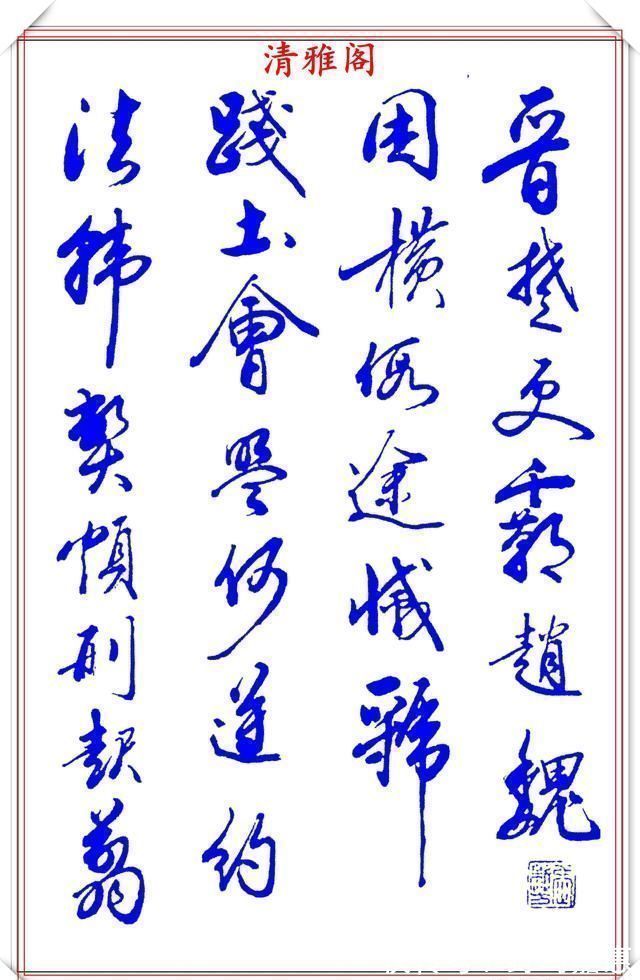 清雅阁
晉楚更霸趙魏
困橫假途滅虢
踐土會盟何遵約
法韓弊煩刑起翦